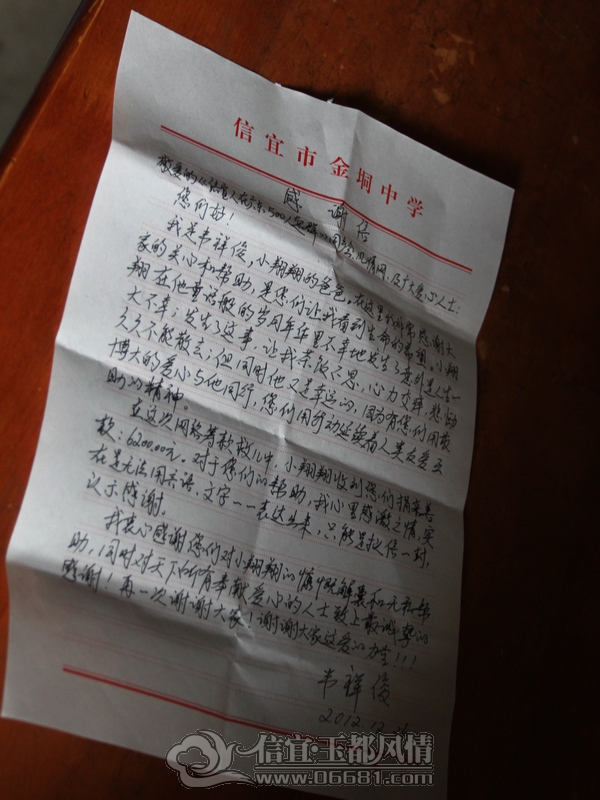 信宜市金垌中学
感谢信
敬爱的
风情网及广大爱心人士:
您们好!
我是韦祥俊,小翔翔的爸爸。在这里我非常感谢大
家的关心和帮助,是您们让我看到生命的希望。小翔
翔在他童话般的岁月年华里不幸地发生了意外是人生一
大不幸;发生了这事,让我茶饭不思,心力交瘁,悲恸
久久不能散去;但同时他又是幸运的,因为有您们用最
博大的爱心与他同行,您们用行动延续着人类友爱互
助的精神。
在这次网络筹款救儿中,小翔翔收到您们捐来善
款:6200.00元。对于您们的帮助,我心里感激之情,实
在是无法用言语、文字一一表达出来,只能是致信一封,
以示感谢。
我衷心感谢您们对小翔翔的慷慨解囊和无私帮
助,同时对天下所有奉献爱心的人士致上最诚挚的
感谢!再一次谢谢大家!谢谢大家这爱的力量!!!
韦祥俊
2012.12.
信宜·玉都风情
www.06681.com